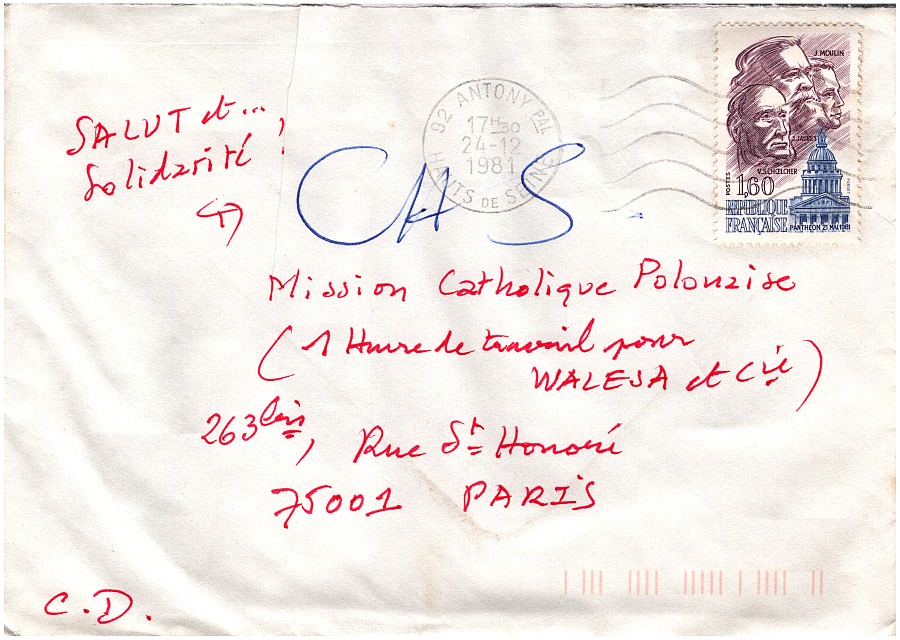 SALUT et...
Solidarité !
CHS
92 ANTONY PAL
17H30
24-12
1981
HAUTS DE SEINE
J. MOULIN
J. JAURES
V. SCHŒLCHER
POSTES
1,60
REPUBLIQUE
FRANÇAISE
PANTHEON 21 MAI 1981
Mission Catholique Polonaise
(1 Heure de travail pour
WALESA et Cie)
263 bis, Rue St Honoré
75001 PARIS
C.D.